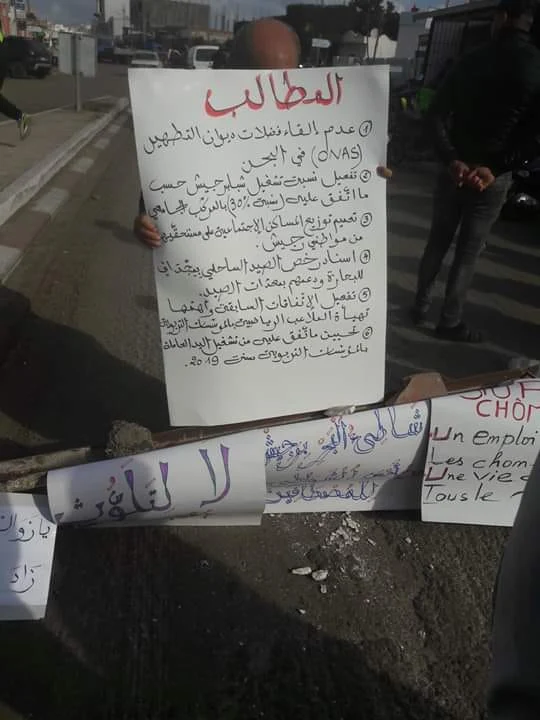 المطالب
① عدم إلقاء فضلات ديوان التطهير
(ONAS) في البحر
② تفعيل نسبة تشغيل شباب رجيش حسب
ما اتفق عليه (نسبة 30%) بالمركب الجامعي
③ تعميم توزيع المساكن الاجتماعية على مستحقيها
من مواطني رجيش.
④ اسناد رخص الصيد الساحلي
للبحارة ودعمهم بمعدات الصيد.
⑤ تفعيل الإتفاقات السابقة وأهمها
تهيأة الملاعب الرياضية بالمؤسسات التربوية
⑥ تحيين ما اتفق عليه من تشغيل اليد العاملة
بالمؤسسات التربوية سنة 2019.
لا لتلوث
شاطئ البحر برجيش
المصطافين
CHÔM
Un emploi
Les chom-
Une vie
Tous le